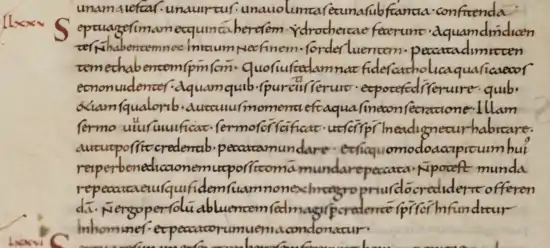 unam uestas · una uirtus · una uoluntas et una substantia · confitenda
lxxv Septuagesimam et quintam heresem ydrotheitae fecerunt · Aquam dm dicen
tes n habentem nec initium nec finem · sordes luentem · peccata dimitten
tem et habentem spm scm · Quos iuste damnat fides catholica quasi caecos
et non uidentes · Aquam quib · spurcus seruit · et potes ac disseruire · quib ·
&iam squaloribus · aut cuius momenti est aqua sine consecratione · Illam
sermo uiuus uiuificat · sermo scs scificat · ut scs sps in ea dignetur habitare ·
aut ut possit credentib · peccata mundare · et sic quomodo accipitum hui
rei per benedictionem ut possit oma mundare peccata · N potest munda
re peccata eius qui fidem suam non ex integro prius do crediderit offeren
da · N ergo per solum abluentem sed magis per credente sps scs infunditur
in homines · et peccatorum uenia condonatur ·
lxxvi